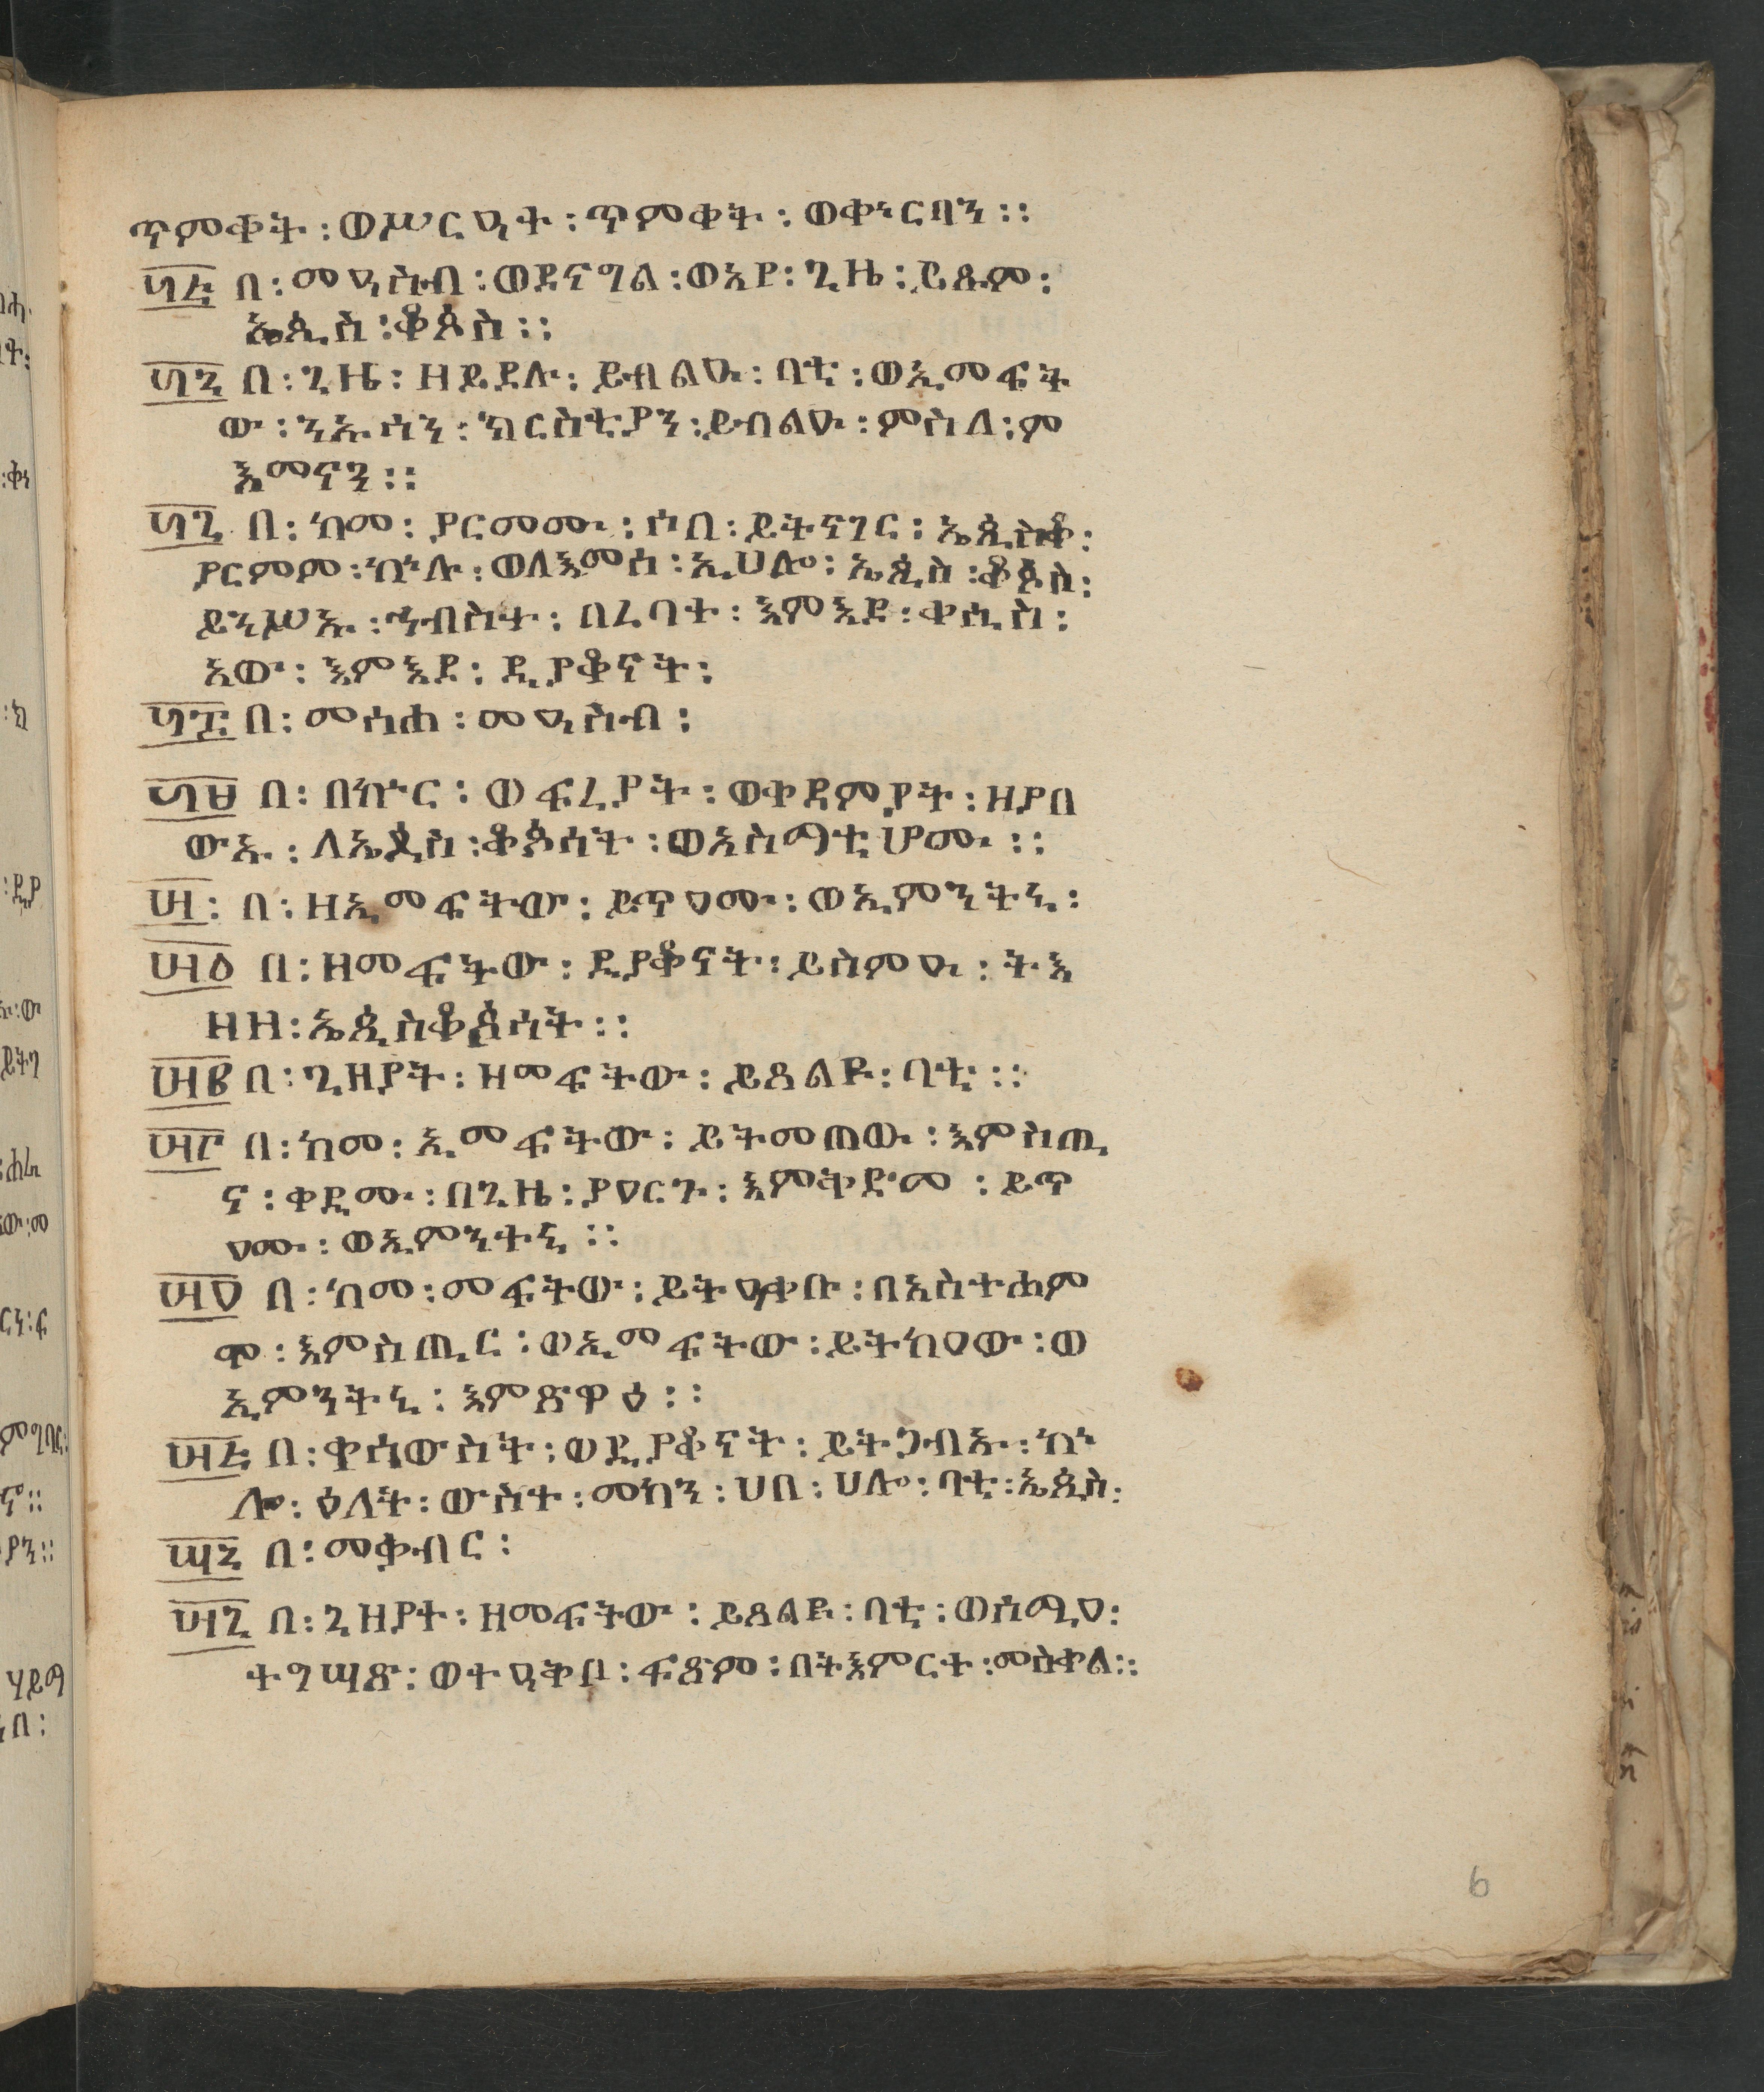 ጥምቀት፡ወሥርዓተ፡ጥምቀት፡ወቀኍርባን፡፡
፴፭ በ፡መዓስብ፡ወደናግል፡ወአየ፡ጊዜ፡ይጹም፡
ኤጲስ፡ቆጶስ፡፡
፴፮ በ፡ጊዜ፡ዘይደሉ፡ይብልዑ፡ባቲ፡ወኢመፍት
ው፡ንኡሰን፡ክርስቲያን፡ይብልዑ፡ምስለ፡ም
እመናን፡፡
፴፯ በ፡ከመ፡ያርመሙ፡ሶበ፡ይትናገር፡ኤጲስቆ፡
ያርምም፡ኵሉ፡ወለእመሰ፡ኢሀሎ፡ኤጲስ፡ቆጶስ፡
ይንሥኡ፡ኅብስተ፡በረባተ፡እምእደ፡ቀሲስ፡
አው፡እምእደ፡ዲያቆናት፡
፴፰ በ፡መሰሐ፡መዓስብ፡
፴፱ በ፡በኵር፡ወፍሬያት፡ወቀዳምያት፡ዘያበ
ውኡ፡ለኤጲስ፡ቆጶሳት፡ወአስማቲሆሙ፡፡
፵፡በ፡ዘኢመፍትው፡ይጥዐሙ፡ወኢምንትኒ፡
፵፩ በ፡ዘመፍትው፡ዲያቆናት፡ይስምዑ፡ትእ
ዘዘ፡ኤጲስቆጶሳት፡፡
፵፪ በ፡ጊዘያት፡ዘመፍትው፡ይጸልዩ፡ባቲ፡፡
፵፫ በ፡ከመ፡ኢመፍትው፡ይትመጠው፡እምስጢ
ና፡ቀዲሙ፡በጊዜ፡ያዐርጉ፡እምቅድመ፡ይጥ
ዐሙ፡ወኢምንተኒ፡፡
፵፬ በ፡ከመ፡መፍትው፡ይትዓቀቡ፡በአስተሐም
ሞ፡እምስጢር፡ወኢመፍትው፡ይትከዐው፡ወ
ኢምንትኒ፡እምጽዋዕ፡፡
፵፭ በ፡ቀሳውስት፡ወዲያቆናት፡ይትጋብኡ፡ኵ
ሎ፡ዕለት፡ውስተ፡መከን፡ሀበ፡ሀሎ፡ባቲ፡ኤጲስ፡
፵፮ በ፡መቃብር፡
፵፯ በ፡ጊዘያተ፡ዘመፍትው፡ይጸልዩ፡ባቲ፡ወሰሚዐ፡
ተግሣጽ፡ወተዓቅቦ፡ፍጽም፡በትእምርተ፡መስቀል፡፡
6